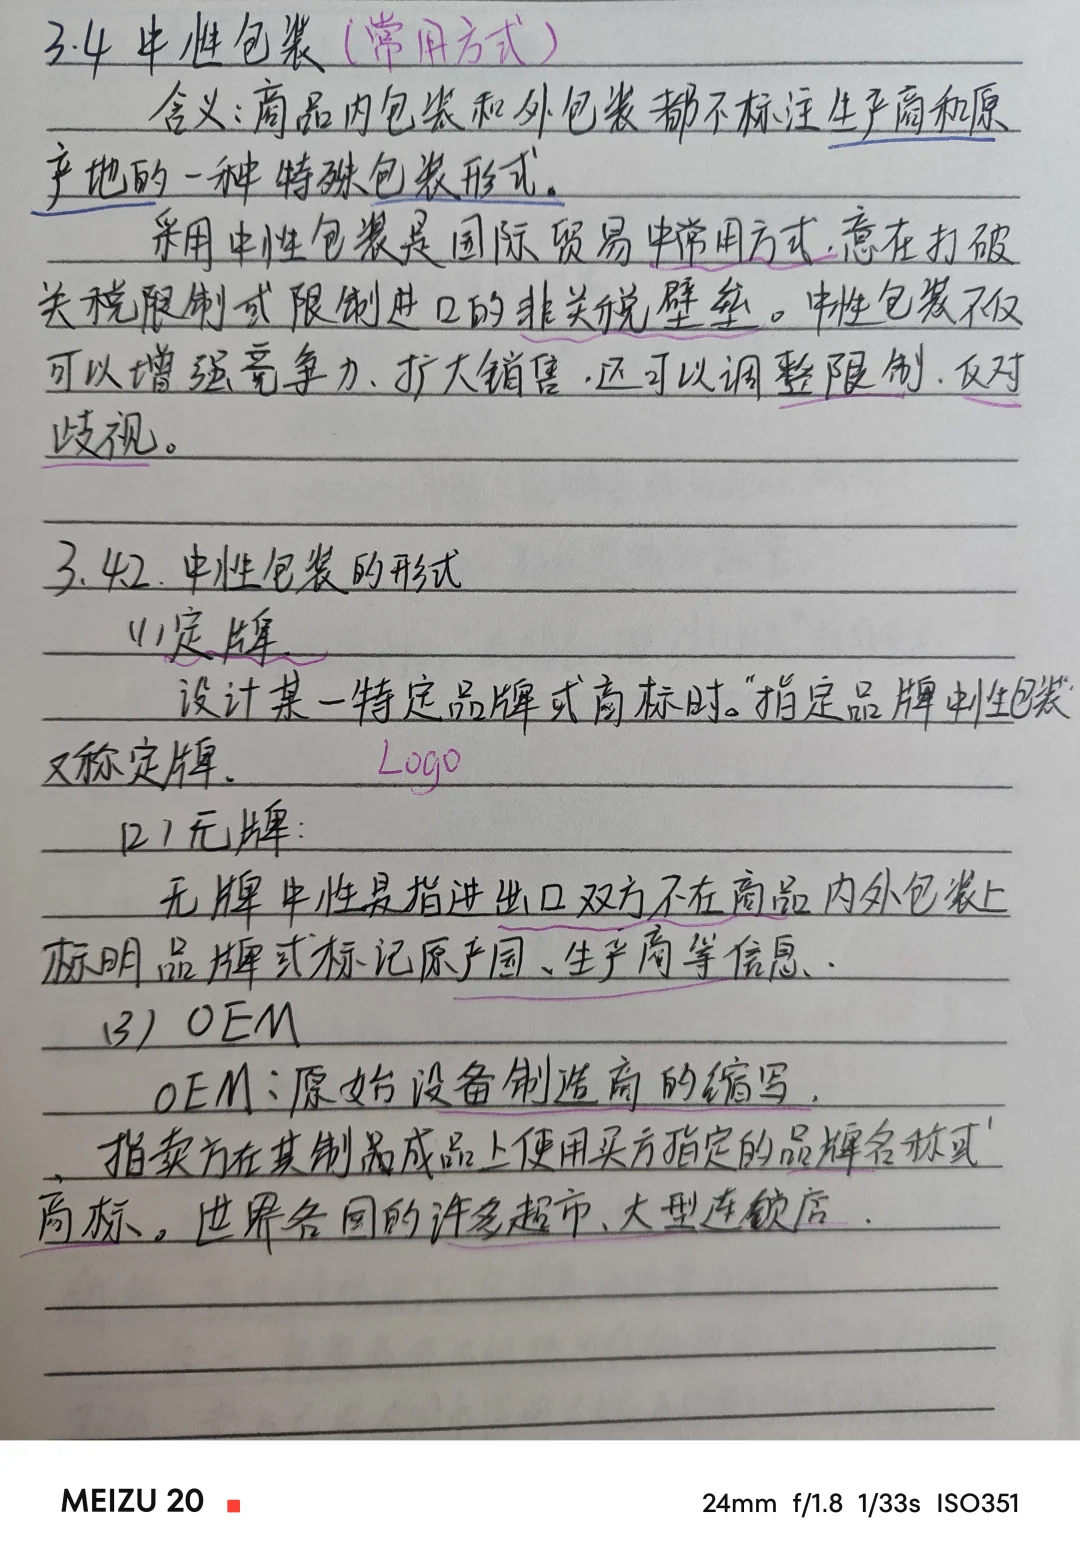 3.4 中性包装(常用方式)
含义:商品内包装和外包装都不标注生产商和原
产地的一种特殊包装形式。
采用中性包装是国际贸易中常用方式,意在打破
关税限制或限制进口的非关税壁垒。中性包装不仅
可以增强竞争力、扩大销售,还可以调整限制、反对
歧视。
3.4.2. 中性包装的形式
(1)定牌.
设计某一特定品牌或商标时。"指定品牌中性包装"
又称定牌.
Logo
(2)无牌:
无牌中性是指进出口双方不在商品内外包装上
标明品牌或标记原产国、生产商等信息.
(3) OEM
OEM:原始设备制造商的缩写.
指卖方在其制成品上使用买方指定的品牌名称或
商标。世界各国的许多超市、大型连锁店.
MEIZU 20
24mm f/1.8 1/33s ISO351